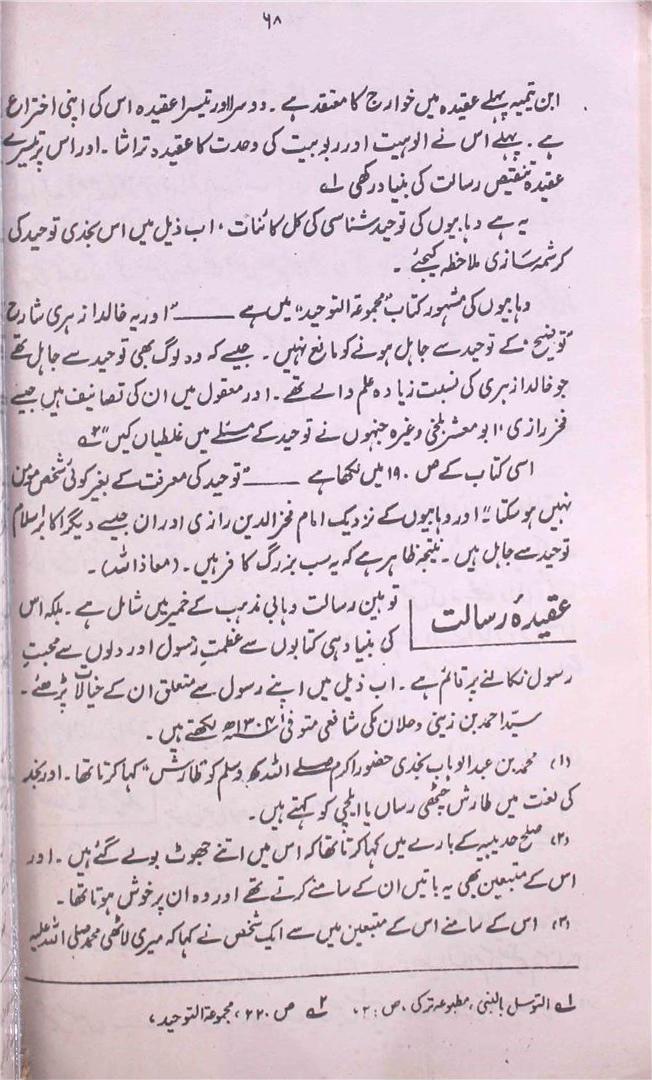 ۶۸
ابن تیمیہ پہلے عقیدہ میں خوارج کا معتقد ہے ۔ دوسرا اور تیسرا عقیدہ اس کی اپنی اختراع
ہے ۔ پہلے اس نے الوہیت اور ربوبیت کی وحدت کا عقیدہ تراشا ۔ اور اس پر تیسرے
عقیدہ تنقیص رسالت کی بنیاد رکھی ۱ے
یہ ہے وہابیوں کی توحید شناسی کی کل کائنات ، اب ذیل میں اس نجدی توحید کی
کرشمہ سازی ملاحظہ کیجئے ۔
وہابیوں کی مشہور کتاب "مجموعۃ التوحید" میں ہے ــــــ "اور یہ خالد ازہری شارح
"توضیح" کے توحید سے جاہل ہونے کو مانع نہیں ۔ جیسے کہ وہ لوگ بھی توحید سے جاہل تھے
جو خالد ازہری کی نسبت زیادہ علم والے تھے ۔ اور معقول میں ان کی تصانیف ہیں جیسے
فخر رازی ، ابو معشر بلخی وغیرہ جنہوں نے توحید کے مسئلے میں غلطیاں کیں" ۲ے
اسی کتاب کے ص ۱۹۰ میں لکھا ہے ــــــ "توحید کی معرفت کے بغیر کوئی شخص مومن
نہیں ہو سکتا" اور وہابیوں کے نزدیک امام فخر الدین رازی اور ان جیسے دیگر اکابر اسلام
توحید سے جاہل ہیں ۔ نتیجہ ظاہر ہے کہ یہ سب بزرگ کافر ہیں ۔ (معاذ اللہ) ۔
عقیدۂ رسالت
توہین رسالت وہابی مذہب کے خمیر میں شامل ہے ۔ بلکہ اس
کی بنیاد ہی کتابوں سے عظمتِ رسول اور دلوں سے محبتِ
رسول نکالنے پر قائم ہے ۔ اب ذیل میں اپنے رسول سے متعلق ان کے خیالات پڑھئے ۔
سیّد احمد بن زینی دحلان مکی شافعی متوفی ۱۳۰۴ھ لکھتے ہیں ۔
(۱) محمد بن عبدالوہاب نجدی حضور اکرم صلے اللہ علیہ وسلم کو "طارش" کہا کرتا تھا ۔ اور نجد
کی لغت میں طارش چٹھی رساں یا ایلچی کو کہتے ہیں ۔
(۲) صلح حدیبیہ کے بارے میں کہا کرتا تھا کہ اس میں اتنے جھوٹ بولے گئے ہیں ۔ اور
اس کے متبعین بھی یہ باتیں ان کے سامنے کرتے تھے اور وہ ان پر خوش ہوتا تھا ۔
(۳) اس کے سامنے اس کے متبعین میں سے ایک شخص نے کہا کہ میری لاٹھی محمد صلی اللہ علیہ
۱ے التوسل بالنبی ، مطبوعہ ترکی ، ص : ۲، ۲ے ص ۲۲۰ ، مجموعۃ التوحید ،